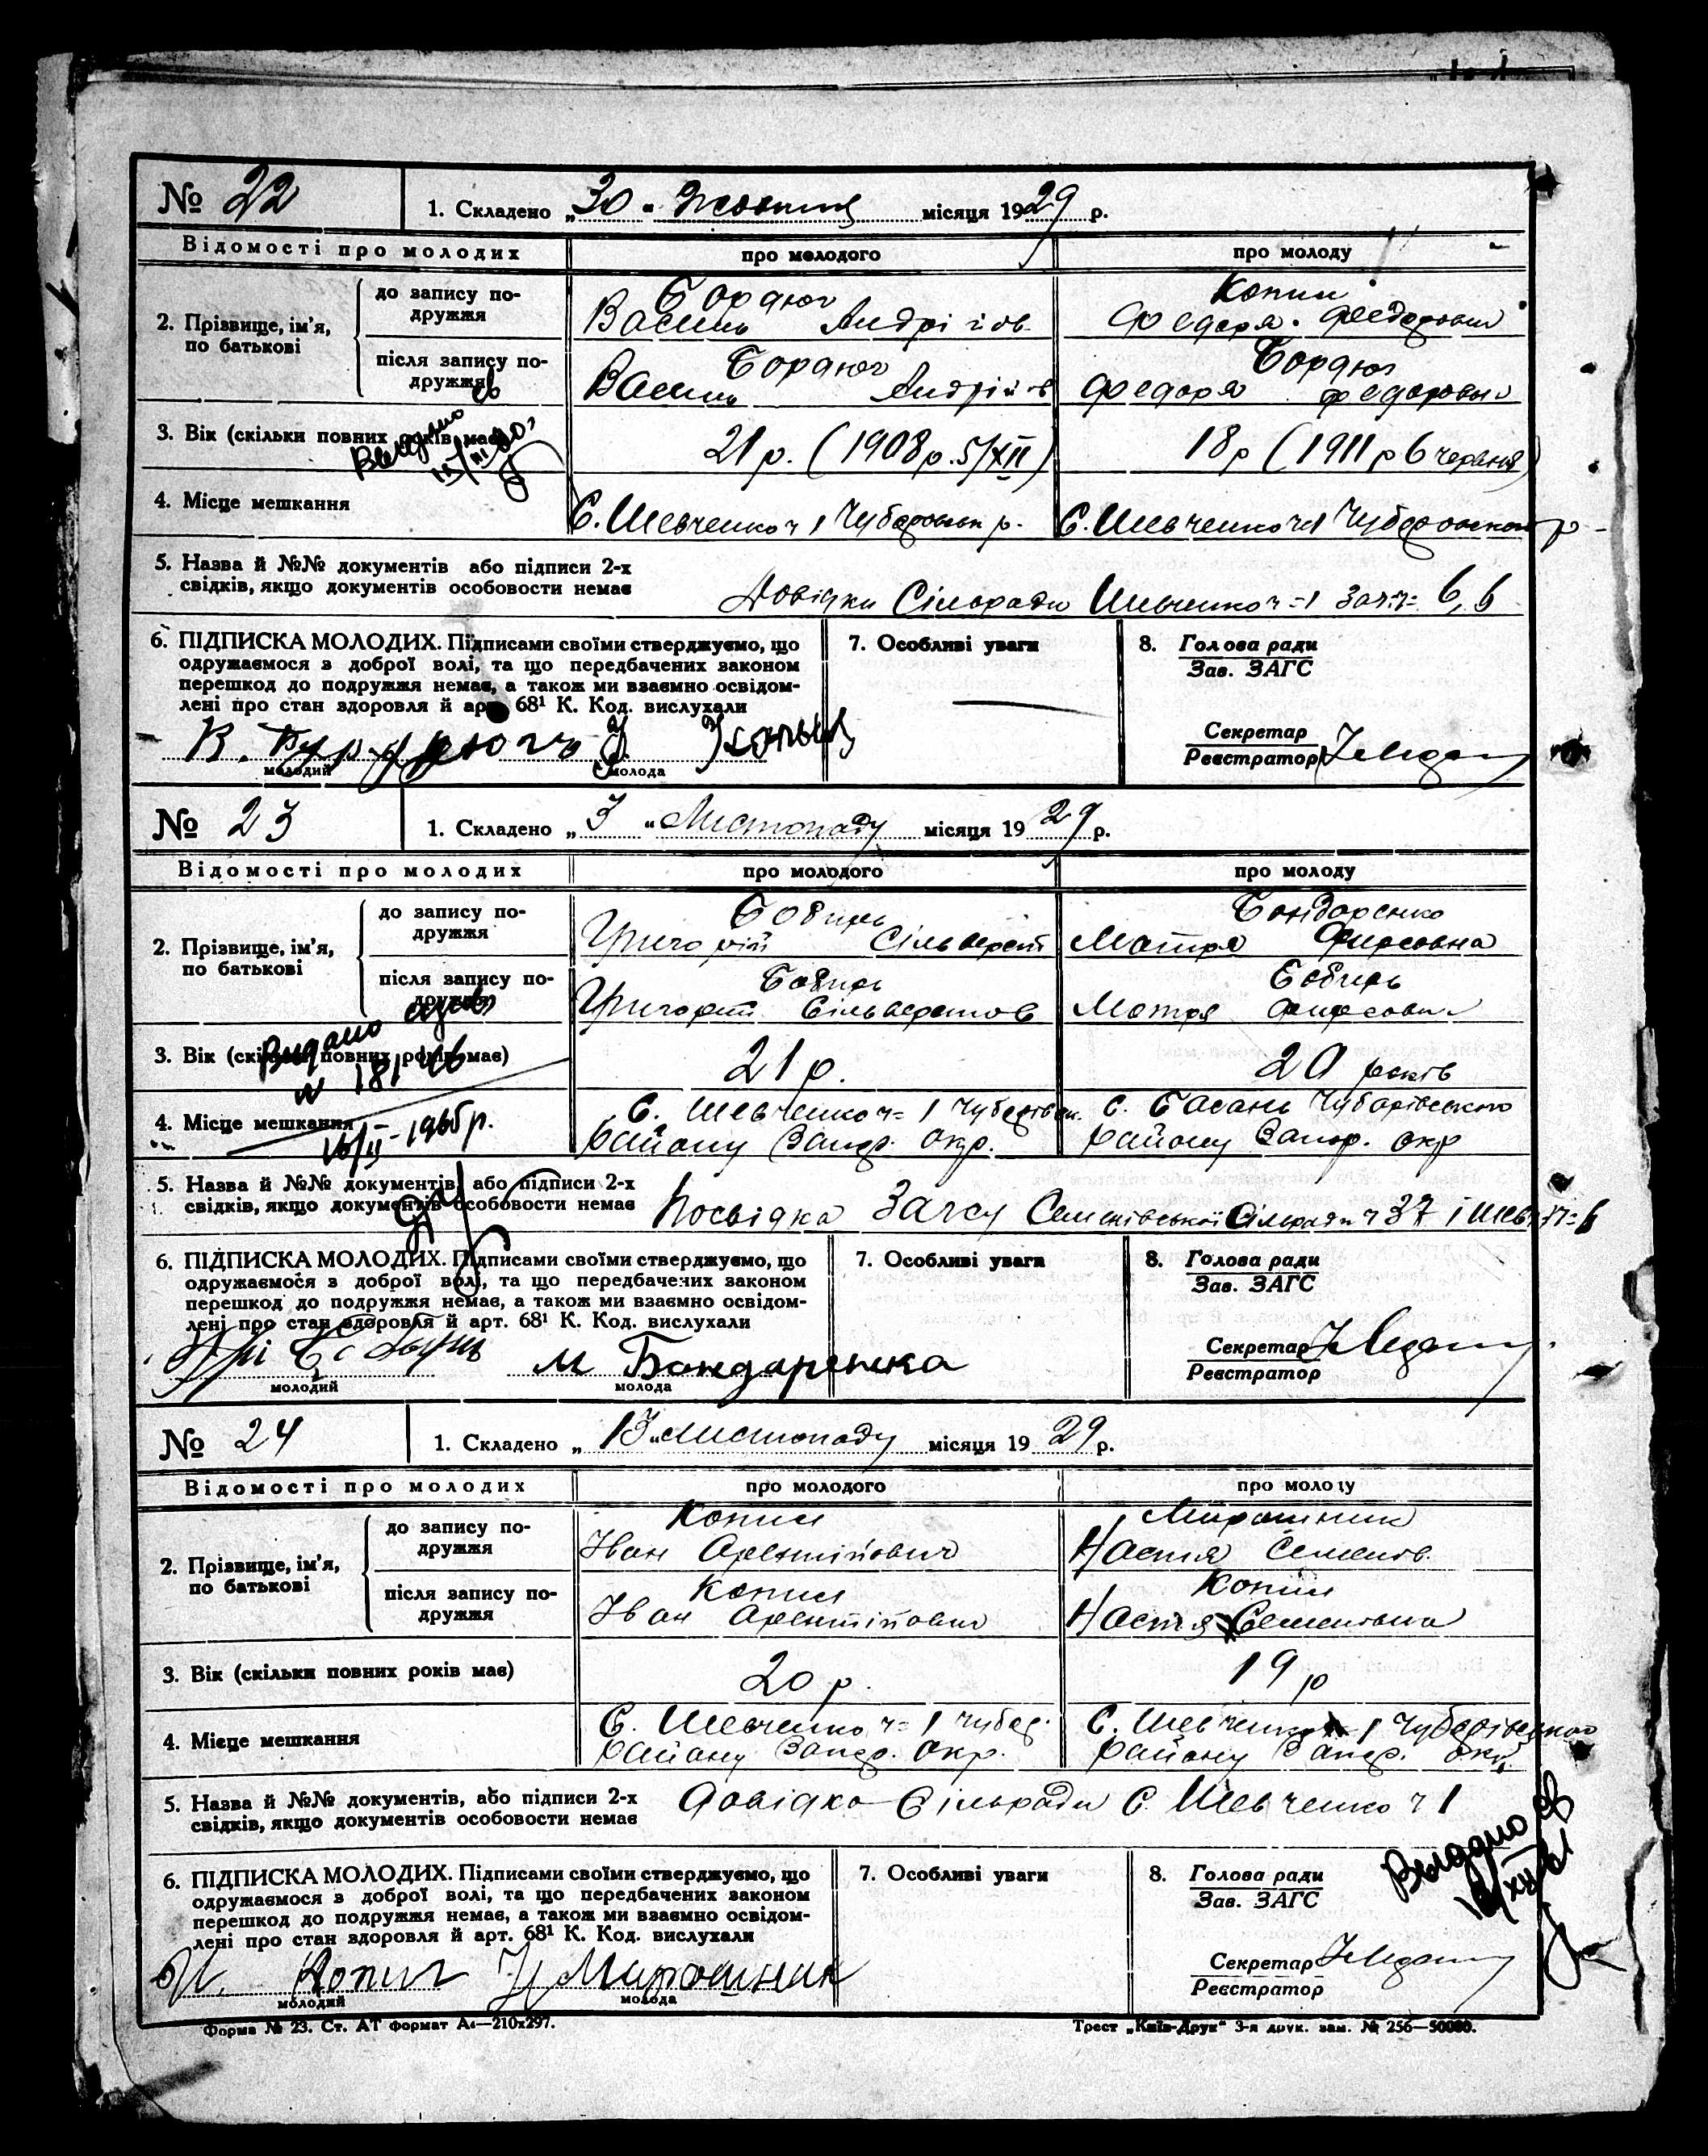 № 22
1. Складено „30“ Жовтня місяця 1929 р.
Відомості про молодих
про молодого
про молоду
2. Прізвище, ім'я, по батькові
до запису подружжя
Бордюг
Василь Андріїов
Копил
Федоря Федоровна
після запису подружжя
Бордюг
Василь Андрійов
Бордюг
Федоря Федоровна
3. Вік (скільки повних років має)
21 р. (1908 р. 5/XII)
18 р (1911 р 6 червня)
4. Місце мешкання
С. Шевченко ч 1 Чубаровськ р.
С. Шевченко ч 1 Чубаровского р
5. Назва й №№ документів або підписи 2-х
свідків, якщо документів особовости немає
Довідки Сільради Шевченко ч=1 за 6, 6
6. ПІДПИСКА МОЛОДИХ. Підписами своїми стверджуємо, що
одружаємося з доброї волі, та що передбачених законом
перешкод до подружжя немає, а також ми взаємно освідом-
лені про стан здоровля й арт. 68¹ К. Код. вислухали
молодий
молода
7. Особливі уваги
8. Голова ради
Зав. ЗАГС
Секретар
Реєстратор
№ 23
1. Складено „3“ Листопаду місяця 1929 р.
Відомості про молодих
про молодого
про молоду
2. Прізвище, ім'я, по батькові
до запису подружжя
Бобирь
Григорій Сільверст
Бондаренко
Мотря Фирсовна
після запису подружжя
Бобирь
Григорій Сільверстов
Бобирь
Мотря Фирсовна
3. Вік (скільки повних років має)
21 р.
20 років
Видано
4. Місце мешкання
С. Шевченко ч=1 Чубарівськ.
Району Запор. Окр.
С. Басань Чубарівського
Району Запор. Окр
5. Назва й №№ документів, або підписи 2-х
свідків, якщо документів особовости немає
Посвідка Загсу Семенівської Сільради ч 37 і Шев
6. ПІДПИСКА МОЛОДИХ. Підписами своїми стверджуємо, що
одружаємося з доброї волі, та що передбачених законом
перешкод до подружжя немає, а також ми взаємно освідом-
лені про стан здоровля й арт. 68¹ К. Код. вислухали
М Бондаренка
молодий
молода
7. Особливі уваги
8. Голова ради
Зав. ЗАГС
Секретар
Реєстратор
№ 24
1. Складено „13“ Листопаду місяця 1929 р.
Відомості про молодих
про молодого
про молоду
2. Прізвище, ім'я, по батькові
до запису подружжя
Копил
Іван
Мирошник
Настя Семенів.
після запису подружжя
Копил
Іван
Копил
Настя Семенівна
3. Вік (скільки повних років має)
20 р.
19 р
4. Місце мешкання
С. Шевченко ч=1 Чубар.
Району Запор. Окр.
С. Шевченко 1 Чубарівського
Району Запор. Окр.
5. Назва й №№ документів, або підписи 2-х
свідків, якщо документів особовости немає
Довідка Сільради С. Шевченко ч 1
6. ПІДПИСКА МОЛОДИХ. Підписами своїми стверджуємо, що
одружаємося з доброї волі, та що передбачених законом
перешкод до подружжя немає, а також ми взаємно освідом-
лені про стан здоровля й арт. 68¹ К. Код. вислухали
И. Копил Н Мирошник
молодий
молода
7. Особливі уваги
8. Голова ради
Зав. ЗАГС
Секретар
Реєстратор
Форма № 23. Ст. АТ формат А₄—210х297.
Трест „Київ-Друк“ 3-я друк. зам. № 256—50000.